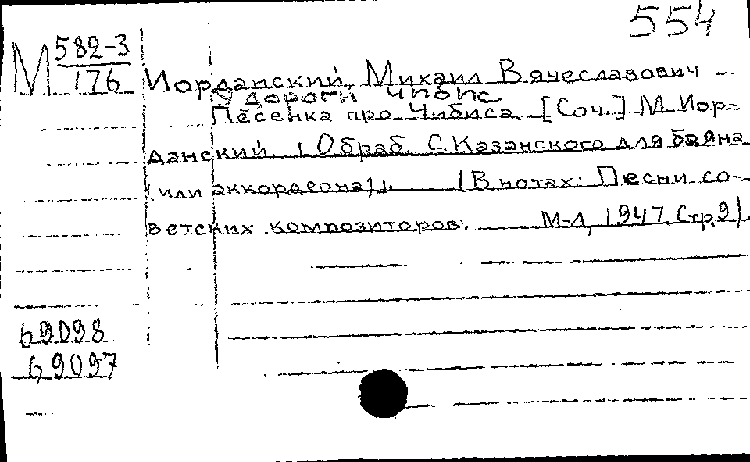 554
М 582-3
176
Иорданский, Михаил Вячеславович -
У дороги чибис
Песенка про Чибиса. [Соч.] М. Иор-
данский. (Обраб. С. Казанского для баяна
(или аккордеона)). (В нотах: Песни со-
ветских композиторов. М-Л, 1947. Стр. 9)
69098
69097